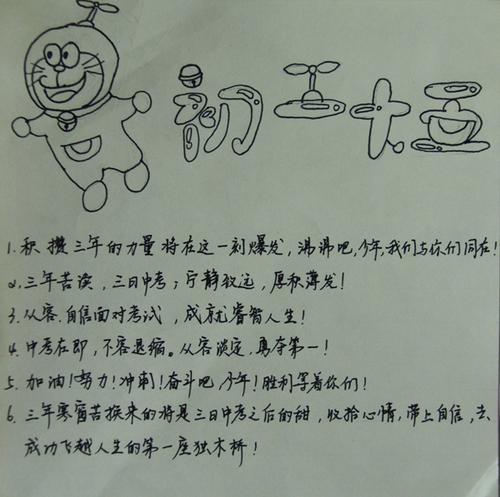 初三十五
1.积攒三年的力量将在这一刻爆发，沸沸吧，少年，我们与你们同在！
2.三年苦读，三日中考；宁静致远，厚积薄发！
3.从容.自信面对考试，成就睿智人生！
4.中考在即，不容退缩。从容淡定，勇夺第一！
5.加油！努力！冲刺！奋斗吧，少年！胜利等着你们！
6.三年寒窗苦换来的将是三日中考之后的甜，收拾心情，带上自信，去
成功飞越人生的第一座独木桥！